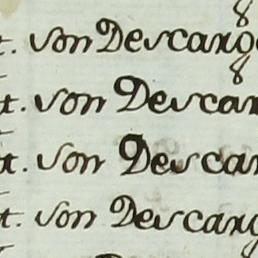 t. von Descang
t. von Descan
t. von Descan
t. von Descang